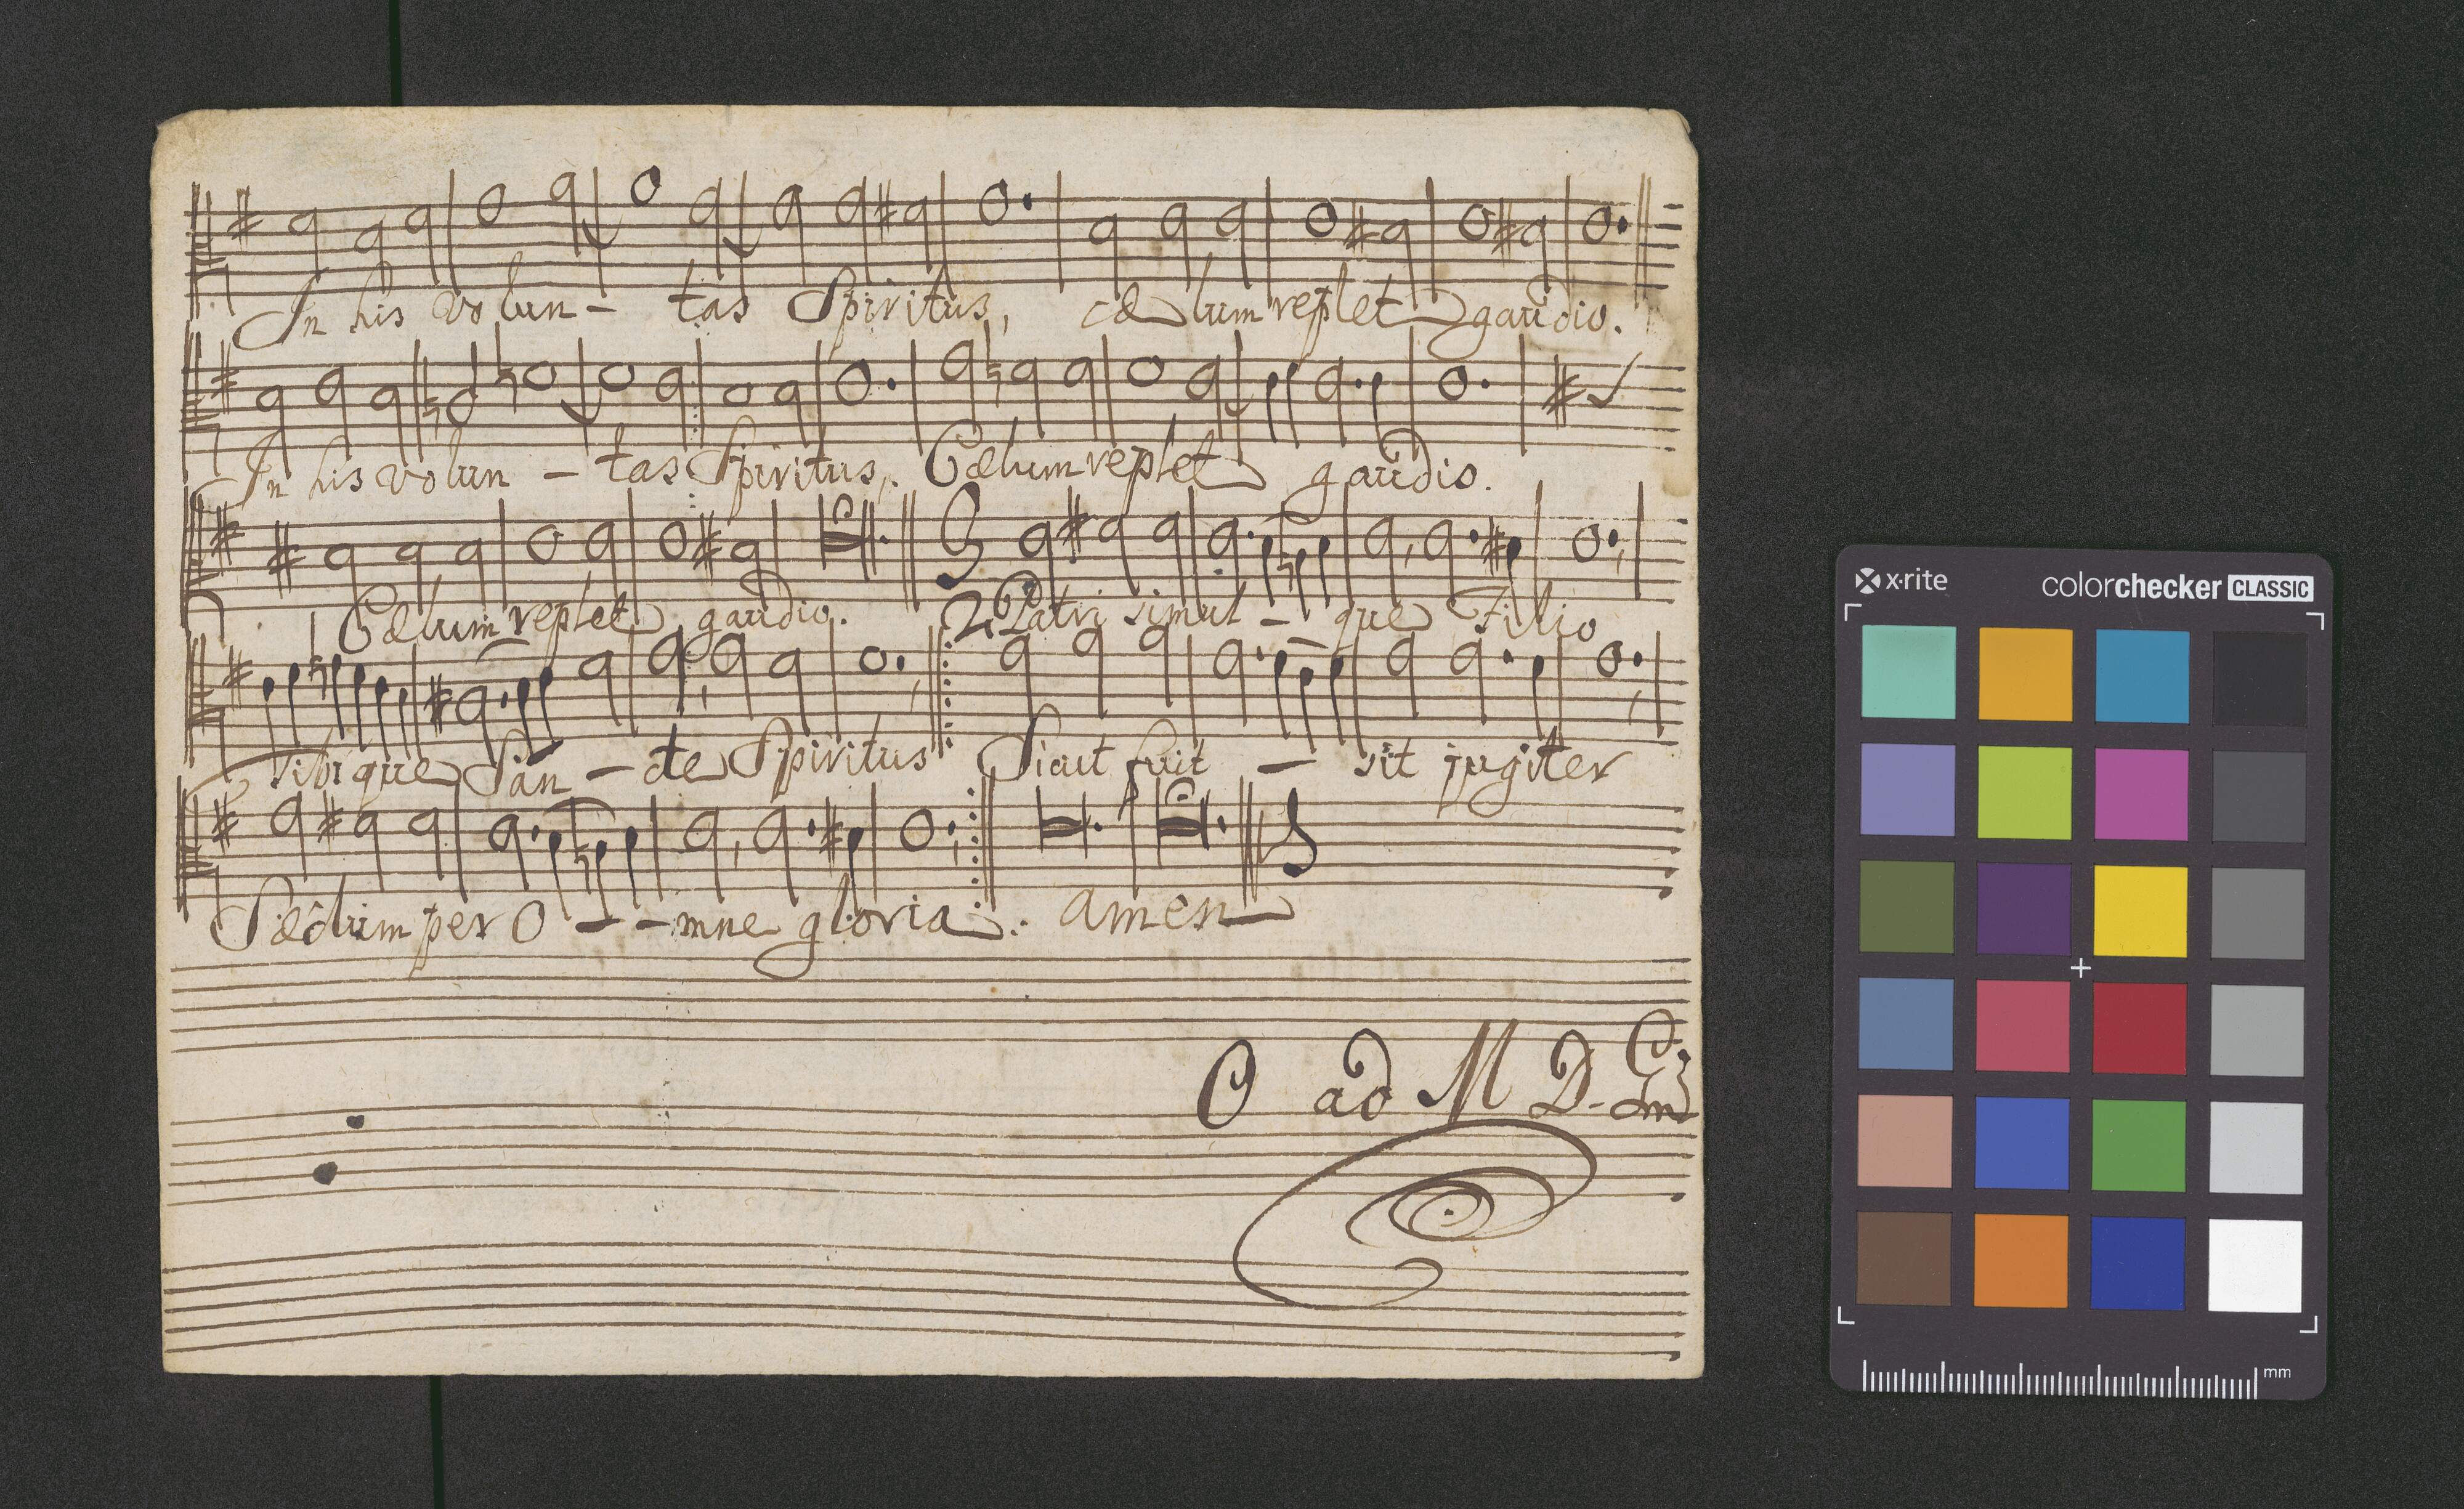 In his volun - tas Spiritus, cælum replet gaudio.
In his volun - tas Spiritus, Cælum replet gaudio.
Cælum replet gaudio. 2 Patri simul - que Filio
tibique San - cte Spiritus Sicut fuit - sit jugiter
Sæclum per O - - mne gloria. amen
O ad M D
x-rite
colorchecker CLASSIC
mm